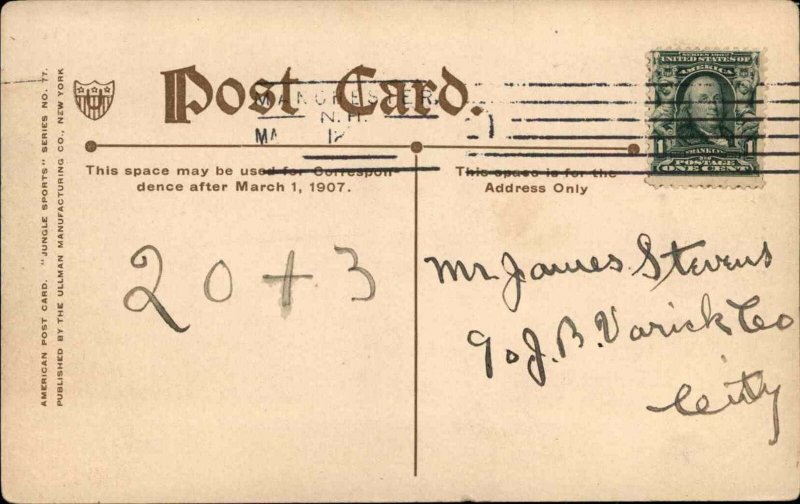 AMERICAN POST CARD. "JUNGLE SPORTS" SERIES NO. 77.
PUBLISHED BY THE ULLMAN MANUFACTURING CO., NEW YORK
Post Card.
MANCHESTER
N.H.
MA 12
SERIES 1902
UNITED STATES OF
AMERICA
FRANKLIN
1 POSTAGE 1
ONE CENT
This space may be used for Correspon-
dence after March 1, 1907.
This space is for the
Address Only
20+3
Mr James Stevens
c/o J. B. Varick Co
City